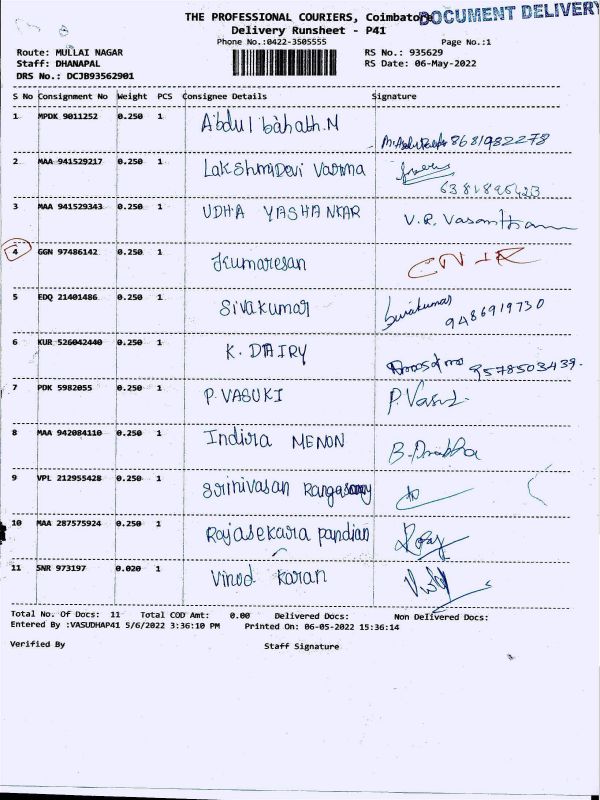 THE PROFESSIONAL COURIERS, Coimbatore
DOCUMENT DELIVERY
Delivery Runsheet - P41
Phone No.:0422-3505555 Page No.:1
Route: MULLAI NAGAR RS No.: 935629
Staff: DHANAPAL RS Date: 06-May-2022
DRS No.: DCJB93562901
S No Consignment No Weight PCS Consignee Details Signature
1 MPDK 9011252 0.250 1 Abdul bahabh.N 8681982278
2 MAA 941529217 0.250 1 Lakshmidevi Varma
3 MAA 941529343 0.250 1 UDHA YASHANKAR V.R. Vasantham
4 GGN 97486142 0.250 1 Jkumaresan
5 EDQ 21401486 0.250 1 Sivakumar Sivakumar
9486919730
6 KUR 526042440 0.250 1 K. DAIRY 9578503439.
7 PDK 5982055 0.250 1 P. VASUKI P. Vasuki
8 MAA 942084110 0.250 1 Indira MENON B. Prabha
9 VPL 212955428 0.250 1 Srinivasan Rangasamy
10 MAA 287575924 0.250 1 Rajasekara pandian
11 SNR 973197 0.020 1 Vinod Karan
Total No. Of Docs: 11 Total COD Amt: 0.00 Delivered Docs: Non Delivered Docs:
Entered By :VASUDHAP41 5/6/2022 3:36:10 PM Printed On: 06-05-2022 15:36:14
Verified By Staff Signature